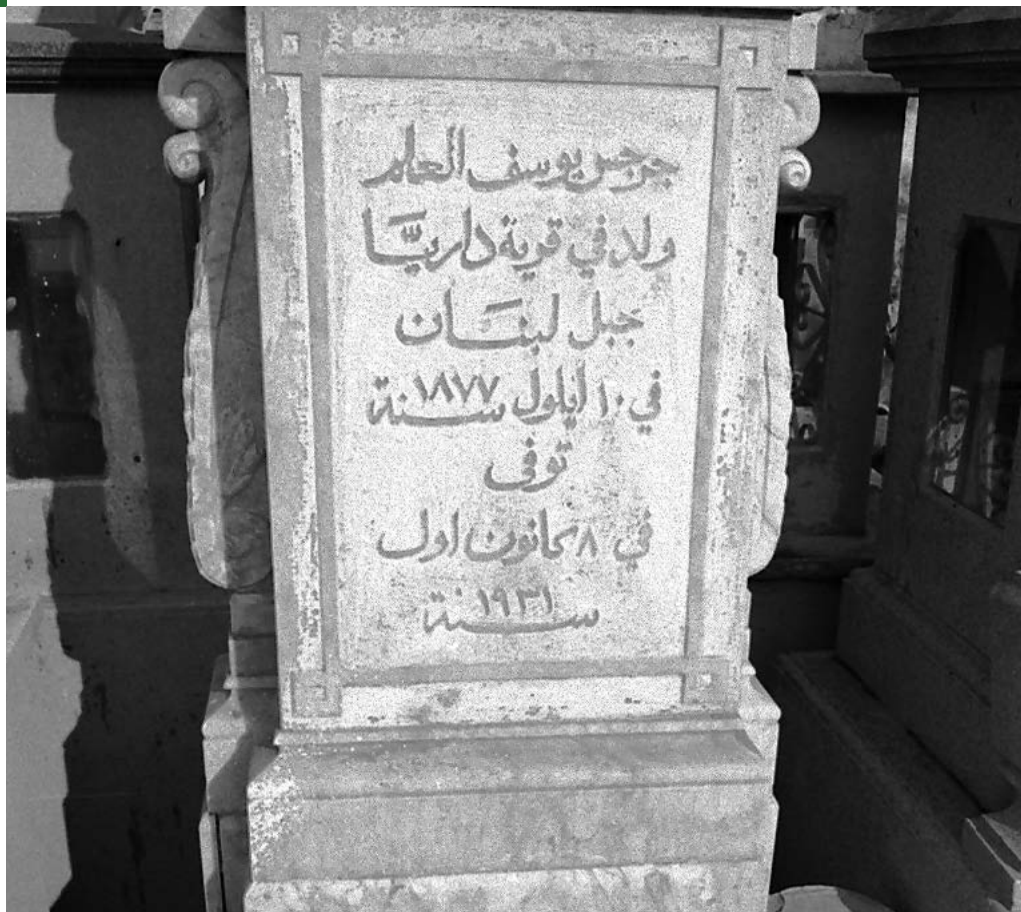 جرجس يوسف العلم
ولد في قرية داريَّا
جبل لبنان
في ١٠ ايلول سنة ١٨٧٧
توفى
في ٨ كانون اول
سنة ١٩٣١